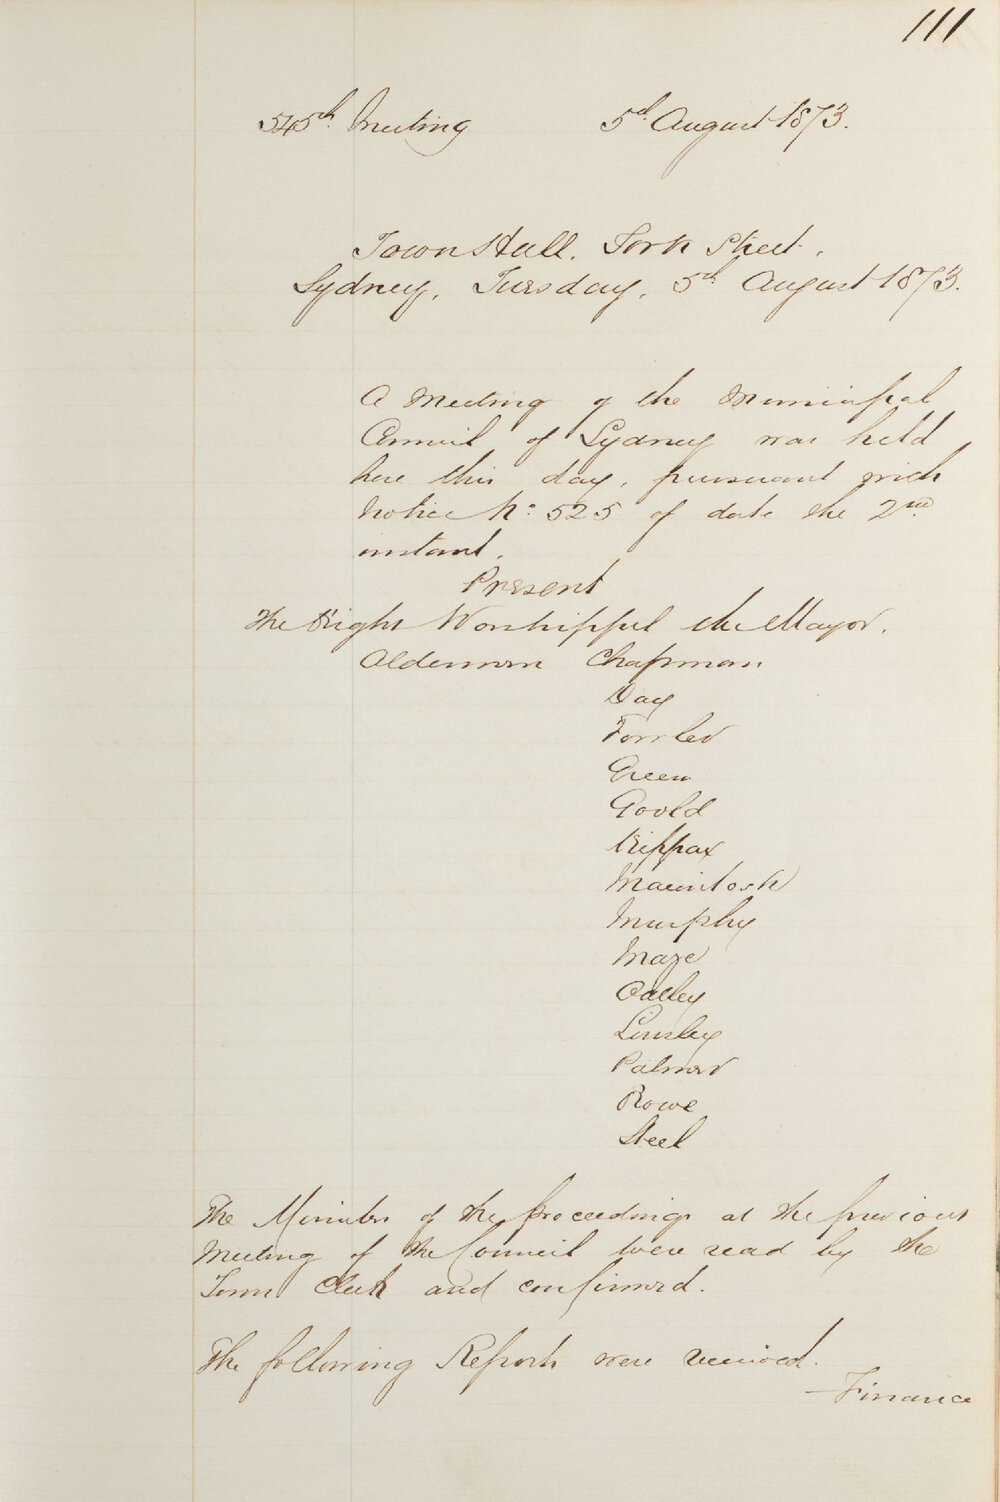 111
545th Meeting 5th August 1873.
Town Hall, York Street,
Sydney, Tuesday, 5th August 1873.
A Meeting of the Municipal
Council of Sydney was held
here this day, pursuant with
Notice No: 525 of date the 2nd
instant.
Present
The Right Worshipful the Mayor.
Aldermen Chapman
Day
Fowler
Green
Goold
Kippax
Macintosh
Murphy
Maze
Oatley
Linsley
Palmer
Rowe
Steel
The Minutes of the Proceedings at the previous
Meeting of the Council were read by the
Town Clerk and confirmed.
The following Reports were received.
—Finance